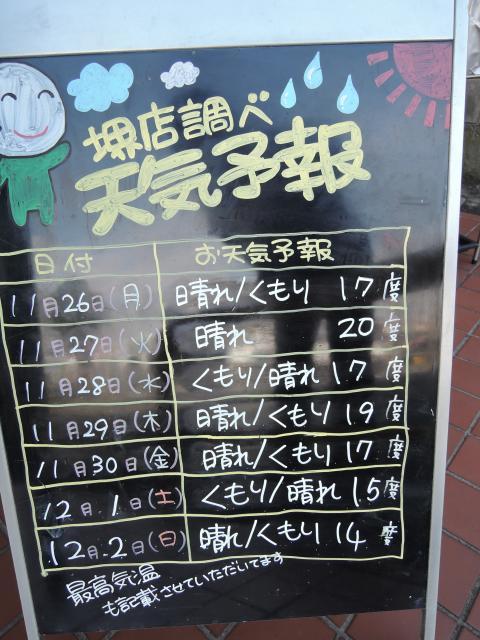 堺店調べ
天気予報
日付 お天気予報
11月26日(月) 晴れ/くもり 17度
11月27日(火) 晴れ 20度
11月28日(水) くもり/晴れ 17度
11月29日(木) 晴れ/くもり 19度
11月30日(金) 晴れ/くもり 17度
12月1日(土) くもり/晴れ 15度
12月2日(日) 晴れ/くもり 14度
最高気温
も記載させていただいてます